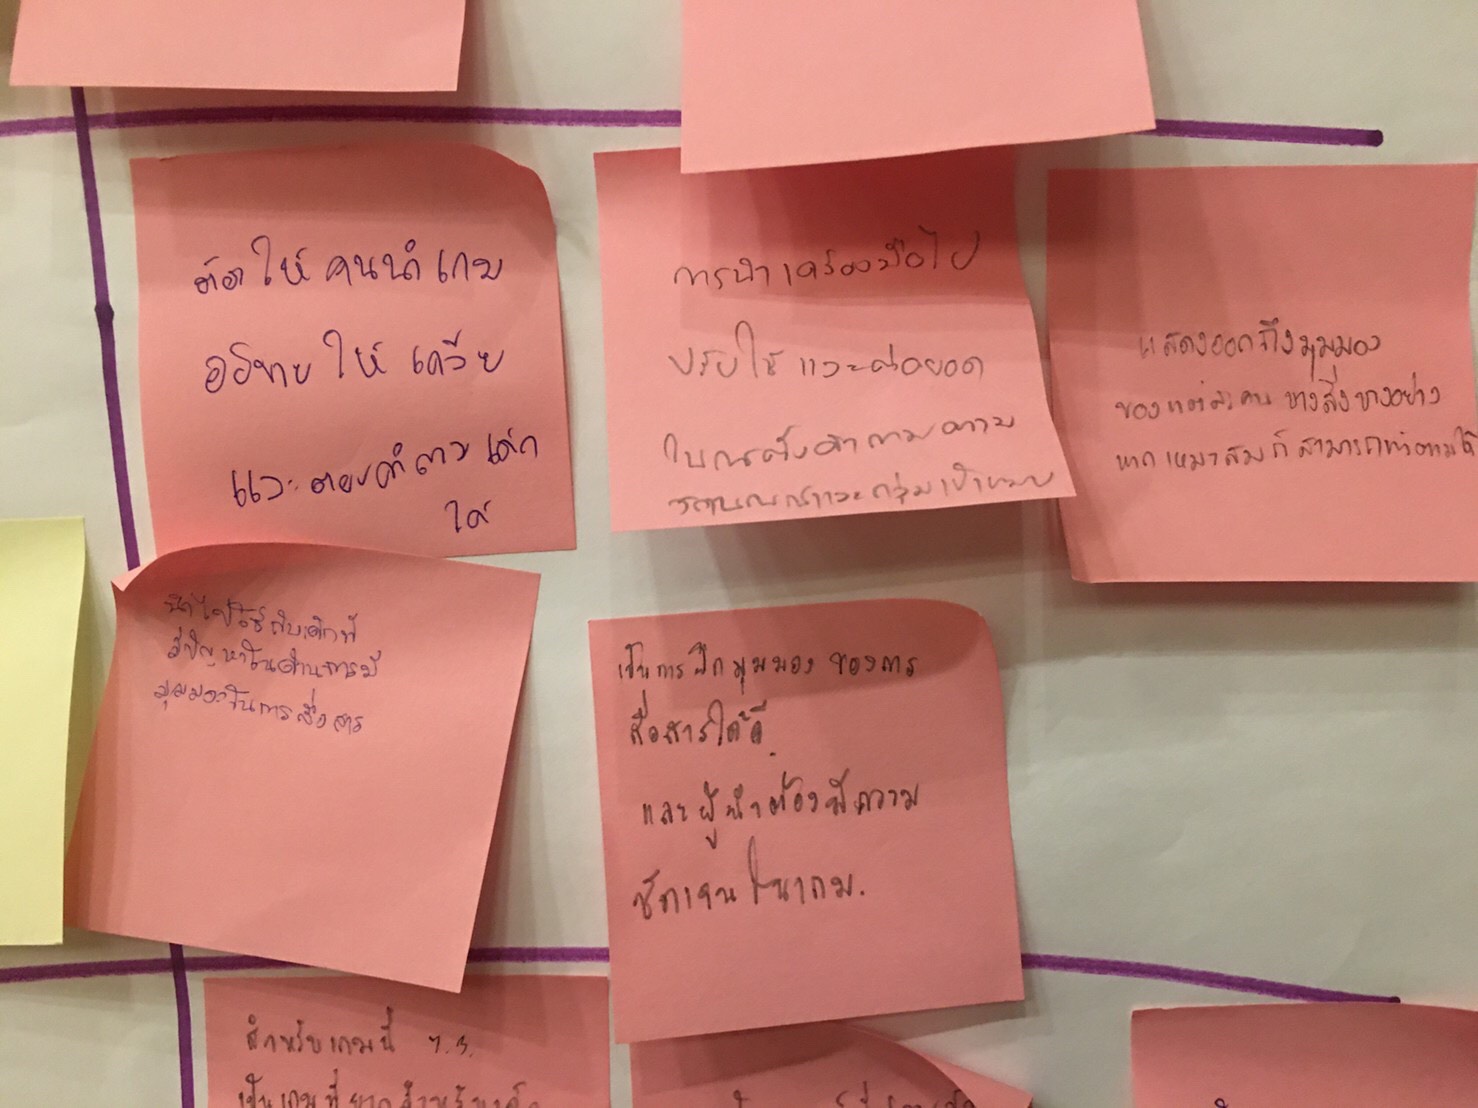 ต้องให้คนนำเกม
อธิบายให้เคลียร์
และตอบคำถามเด็ก
ได้
การนำเครื่องมือไป
ปรับใช้และต่อยอด
ในการตั้งคำถามตาม
และกลุ่มเป้าหมาย
แสดงออกถึงมุมมอง
ของแต่ละคน บางสิ่งบางอย่าง
หากเหมาะสมก็สามารถทำตามได้
นำไปใช้กับเด็กที่
มีปัญหาในด้านการมี
มุมมองในการสื่อสาร
เป็นการฝึกมุมมองของการ
สื่อสารได้ดี
และผู้นำต้องมีความ
ชัดเจนในเกม.
สำหรับเกมนี้
เป็นเกมที่ยากสำหรับเด็ก